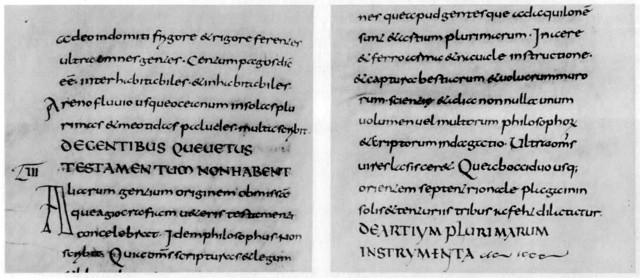 adeo indomiti frigore & rigore ferentes
ultra omnes gentes. Centum pagos dic
eē. inter habitabiles & inhabitabiles.
A reno fluuio usque oceanum insolas plu
rimas & meotidas paludes. multa scribit.
DE GENTIBUS QUE UETUS
LIII TESTAMENTUM NON HABENT
Aliarum gentium originem obmissa
que agiografum ueteris testamenti
concelebrat. Idem philosophus non
scribit. Qui oms scripturas & legum
que apud gentes que ad aquilonē
sunt & plurimarum. In aere
& ferro arma & iacula instructione.
& captura bestiarum & uolucrum muro
rum. scientia & alia nonnulla unum
uolumen uel multorum philosophoꝝ
& scriptorum indagatio. Ultra oms
uires Que ab occiduo usq;
orientem septentrionale plaga
solis & tribus dilatatur.
DE ARTIVM PLURIMARUM
INSTRVMENTA